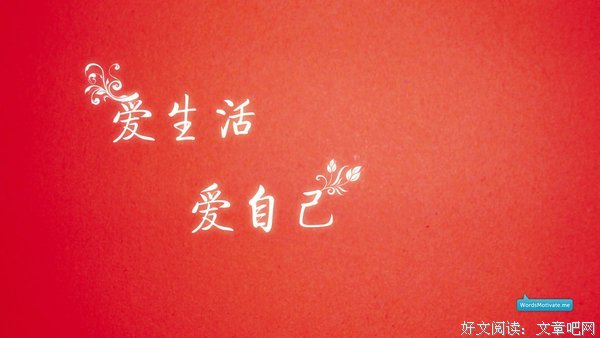 爱生活
爱自己
WordsMotivate.me
好文阅读：文章吧网